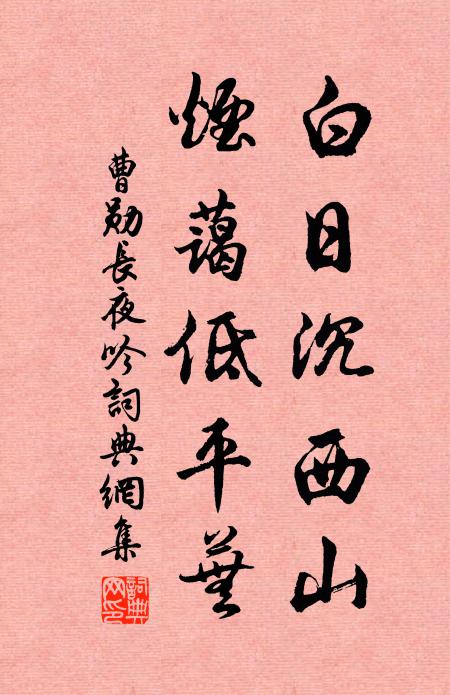 白日沉西山
煙藹低平蕪
曹勛長夜吟詞典網集
詞典網印